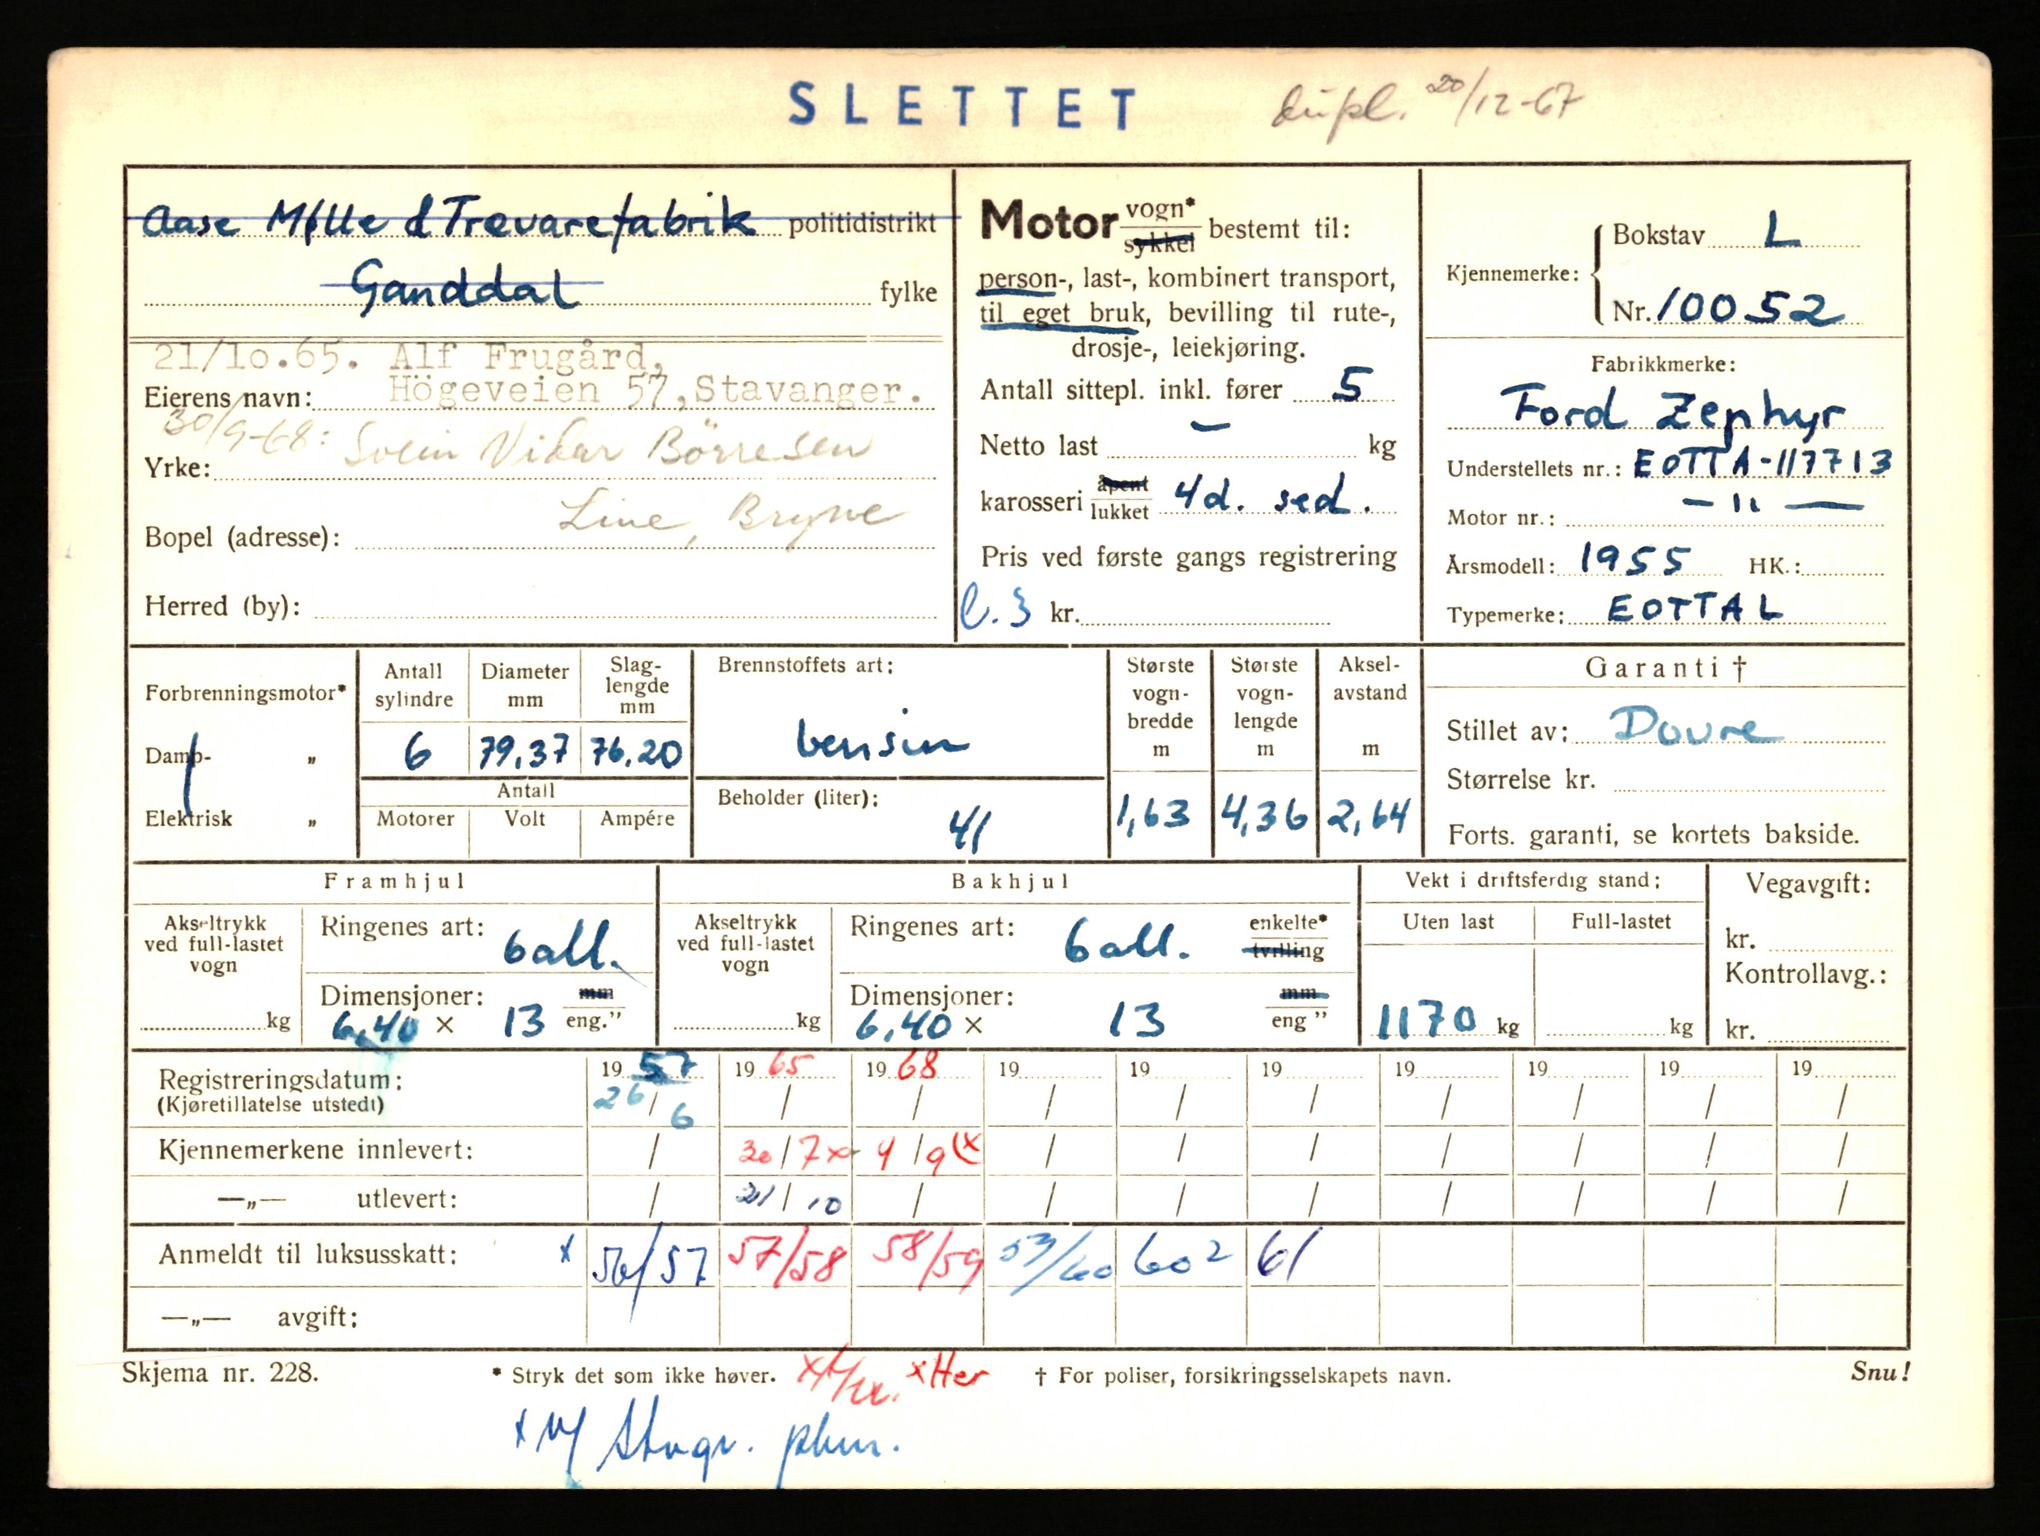 SLETTET dupl. 20/12-67
Aase Mølle & Trævarefabrik politidistrikt
Ganddal fylke
21/10.65. Alf Frugård,
Eierens navn: Högeveien 57, Stavanger.
30/9-68: Svein Vidar Börresen
Yrke:
Line, Bryne
Bopel (adresse):
Herred (by):
Motor vogn* sykkel bestemt til:
person-, last-, kombinert transport,
til eget bruk, bevilling til rute-,
drosje-, leiekjøring.
Antall sittepl. inkl. fører 5
Netto last — kg
karosseri åpent lukket 4d. sed.
Pris ved første gangs registrering
l. 3 kr.
Kjennemerke: Bokstav L
Nr. 10052
Fabrikkmerke:
Ford Zephyr
Understellets nr.: EOTTA-117713
Motor nr.: — " —
Årsmodell: 1955 HK.:
Typemerke: EOTTAL
Forbrenningsmotor*
Damp- „
Elektrisk „
Antall sylindre
6
Diameter mm
79,37
Slaglengde mm
76,20
Antall
Motorer Volt Ampére
Brennstoffets art:
bensin
Beholder (liter):
41
Største vogn-bredde m
1,63
Største vogn-lengde m
4,36
Aksel-avstand m
2,64
Garanti †
Stillet av: Dovre
Størrelse kr.
Forts. garanti, se kortets bakside.
Framhjul
Akseltrykk ved full-lastet vogn
kg
Ringenes art: ball.
Dimensjoner: mm
6,40 × 13 eng."
Bakhjul
Akseltrykk ved full-lastet vogn
kg
Ringenes art: ball. enkelte* tvilling
Dimensjoner: mm
6,40 × 13 eng "
Vekt i driftsferdig stand:
Uten last Full-lastet
1170 kg kg
Vegavgift:
kr.
Kontrollavg.:
kr.
Registreringsdatum: 19 57 19 65 19 68 19 19 19 19 19 19 19
(Kjøretillatelse utstedt) 26/6 / / / / / / / / /
Kjennemerkene innlevert: / 30/7 x 4/9 (x / / / / / / /
—„— utlevert: / 21/10 / / / / / / / /
Anmeldt til luksusskatt: x 56/57 57/58 58/59 59/60 60² 61
—„— avgift:
Skjema nr. 228. * Stryk det som ikke høver. x Her † For poliser, forsikringsselskapets navn. Snu!
x v/ Stvgr. pkm.